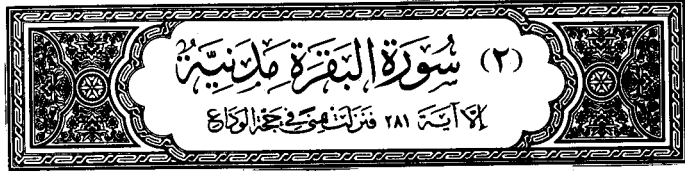 (٢) سُورَةُ البَقَرَةِ مَدَنِيَّةٌ
إلا آية ٢٨١ فنزلت بمنى في حجة الوداع